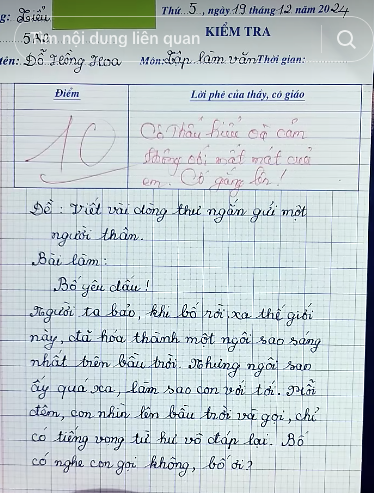 Thứ 5, ngày 19 tháng 12 năm 2024
KIỂM TRA
Tìm nội dung liên quan
tên: Đỗ Hồng Hoa Môn: Tập làm văn Thời gian:
Điểm Lời phê của thầy, cô giáo
10
Cô thấu hiểu và cảm
thông với mất mát của
em. Cố gắng lên!
Đề: Viết vài dòng thư ngắn gửi một
người thân.
Bài làm:
Bố yêu dấu!
Người ta bảo, khi bố rời xa thế giới
này, đã hóa thành một ngôi sao sáng
nhất trên bầu trời. Nhưng ngôi sao
ấy quá xa, làm sao con với tới. Mỗi
đêm, con nhìn lên bầu trời và gọi, chỉ
có tiếng vang từ hư vô đáp lại. Bố
có nghe con gọi không, bố ơi?